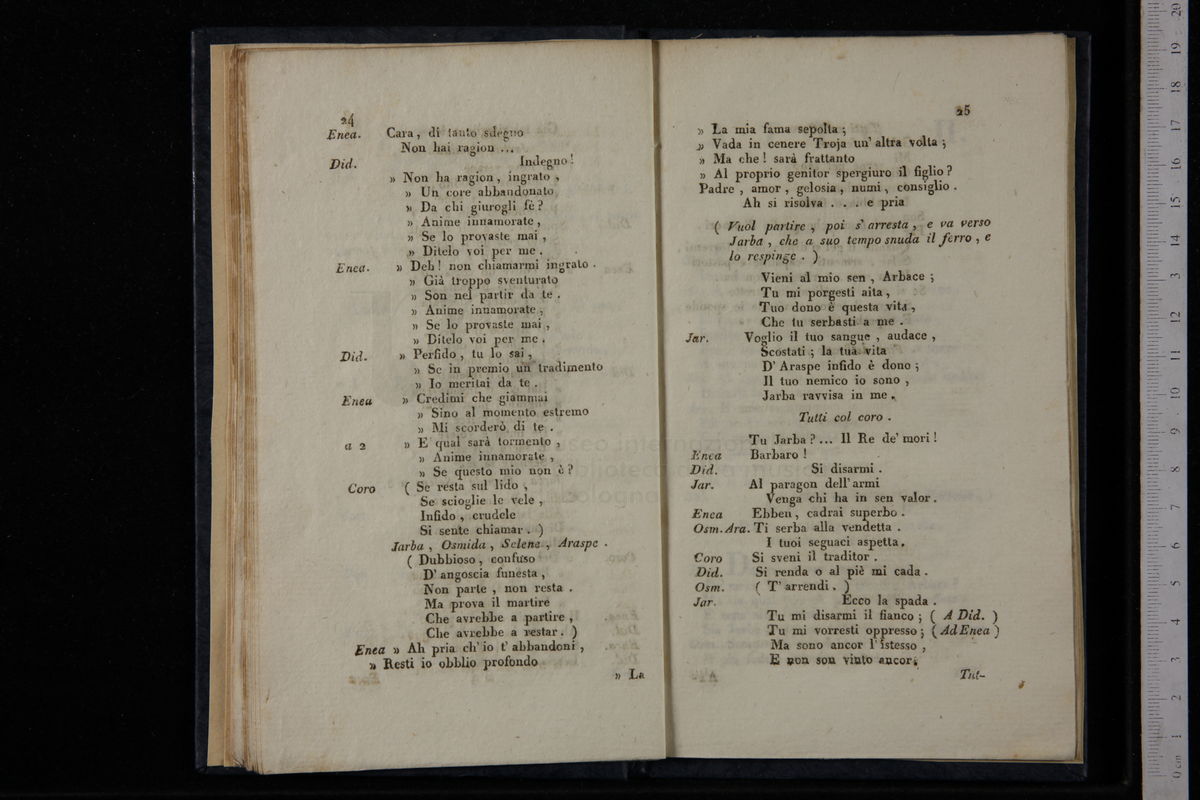 24
Enea. Cara, di tanto sdegno
Non hai ragion ...
Did. Indegno!
» Non ha ragion, ingrato,
» Un core abbandonato
» Da chi giurogli fè?
» Anime innamorate,
» Se lo provaste mai,
» Ditelo voi per me.
Enea. » Deh! non chiamarmi ingrato.
» Già troppo sventurato
» Son nel partir da te.
» Anime innamorate,
» Se lo provaste mai,
» Ditelo voi per me.
Did. » Perfido, tu lo sai,
» Se in premio un tradimento
» Io meritai da te.
Enea » Credimi che giammai
» Sino al momento estremo
» Mi scorderò di te.
a 2 » E qual sarà tormento,
» Anime innamorate,
» Se questo mio non è?
Coro ( Se resta sul lido,
Se scioglie le vele,
Infido, crudele
Si sente chiamar. )
Jarba, Osmida, Selene, Araspe.
( Dubbioso, confuso
D'angoscia funesta,
Non parte, non resta.
Ma prova il martire
Che avrebbe a partire,
Che avrebbe a restar. )
Enea » Ah pria ch'io t'abbandoni,
» Resti io obblio profondo
» La
25
» La mia fama sepolta;
» Vada in cenere Troja un'altra volta;
» Ma che! sarà frattanto
» Al proprio genitor spergiuro il figlio?
Padre, amor, gelosia, numi, consiglio.
Ah si risolva . . . e pria
( Vuol partire, poi s'arresta, e va verso
Jarba, che a suo tempo snuda il ferro, e
lo respinge. )
Vieni al mio sen, Arbace;
Tu mi porgesti aita,
Tuo dono è questa vita,
Che tu serbasti a me.
Jar. Voglio il tuo sangue, audace,
Scostati; la tua vita
D'Araspe infido è dono;
Il tuo nemico io sono,
Jarba ravvisa in me.
Tutti col coro.
Tu Jarba? ... Il Re de'mori!
Enea Barbaro!
Did. Si disarmi.
Jar. Al paragon dell'armi
Venga chi ha in sen valor.
Enea Ebben, cadrai superbo.
Osm. Ara. Ti serba alla vendetta.
I tuoi seguaci aspetta.
Coro Si sveni il traditor.
Did. Si renda o al piè mi cada.
Osm. ( T'arrendi. )
Jar. Ecco la spada.
Tu mi disarmi il fianco; ( A Did. )
Tu mi vorresti oppresso; ( Ad Enea )
Ma sono ancor l'istesso,
E non son vinto ancor.
Tut-